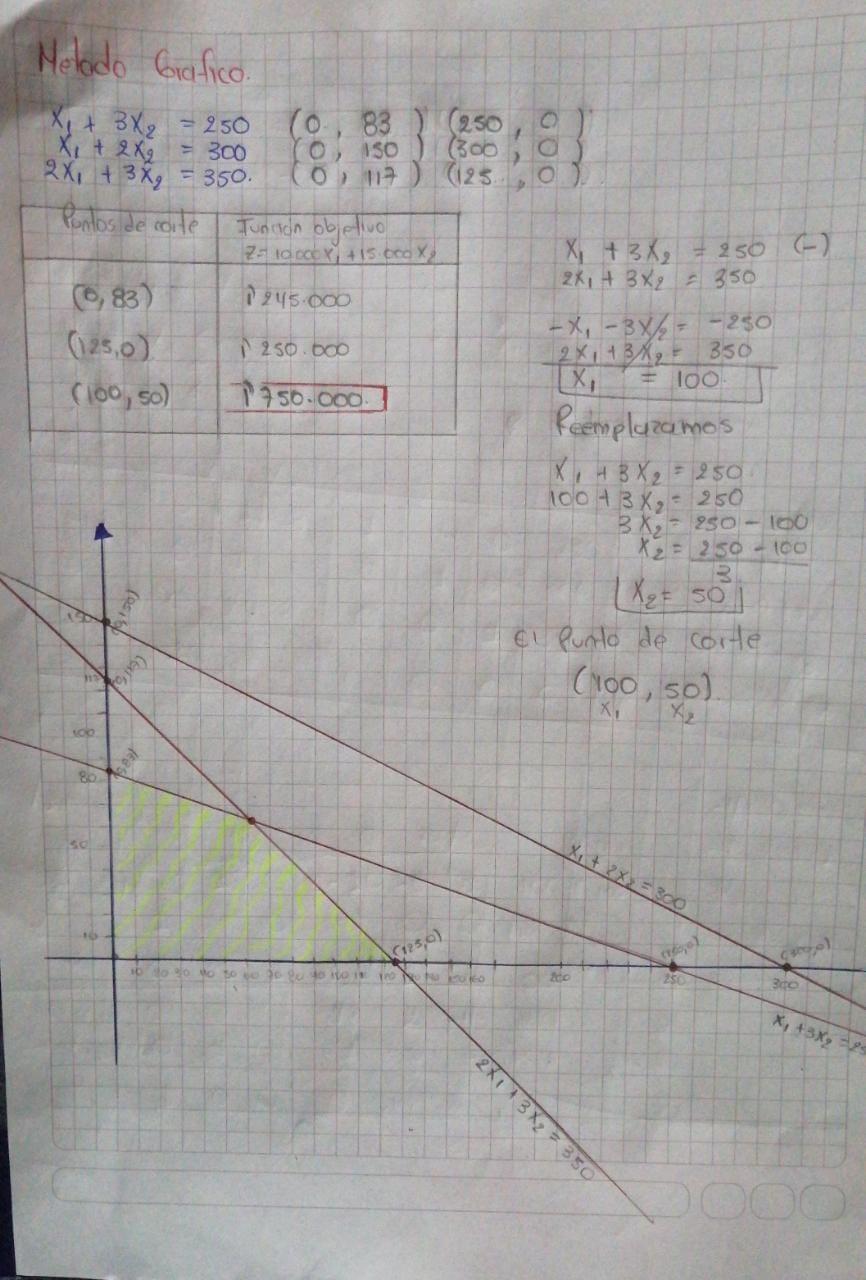 Metodo Grafico.
X₁ + 3X₂ = 250 (0, 83) (250, 0)
X₁ + 2X₂ = 300 (0, 150) (300, 0)
2X₁ + 3X₂ = 350. (0, 117) (125, 0)
Puntos de corte
Función objetivo
Z = 10.000X₁ + 15.000X₂
(0, 83) 1'245.000
(125,0) 1'250.000
(100,50) 1'750.000.
X₁ + 3X₂ = 250 (-)
2X₁ + 3X₂ = 350
-X₁ - 3X₂ = -250
2X₁ + 3X₂ = 350
X₁ = 100.
Reemplazamos
X₁ + 3X₂ = 250.
100 + 3X₂ = 250
3X₂ = 250 - 100
X₂ = 250 - 100
3
X₂ = 50
El Punto de corte
(100, 50).
X₁ X₂
150 (0,150)
100
80
50
10
X₁ + 2X₂ = 300
(125,0) (300,0)
10 20 30 40 50 60 70 80 200 250 300
X₁ + 3X₂ = 25
2X₁ + 3X₂ = 350